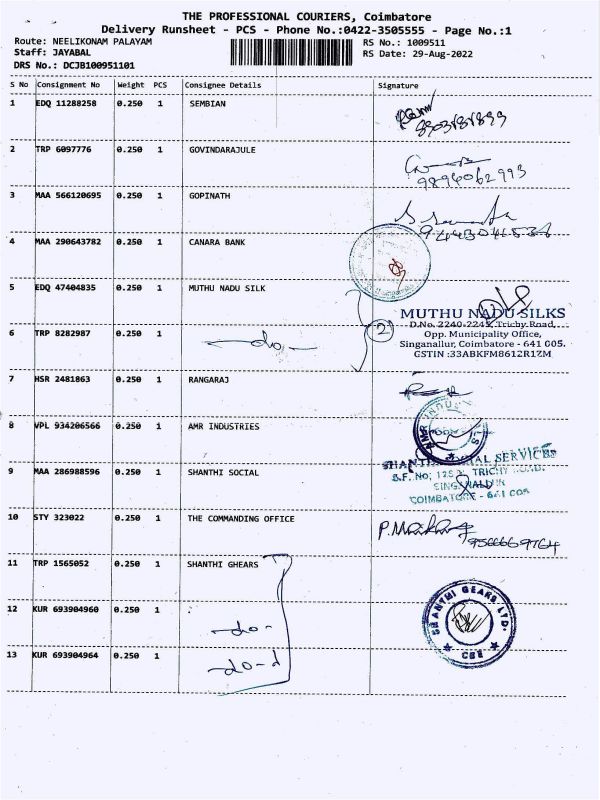 THE PROFESSIONAL COURIERS, Coimbatore
Delivery Runsheet - PCS - Phone No.:0422-3505555 - Page No.:1
Route: NEELIKONAM PALAYAM
RS No.: 1009511
Staff: JAYABAL
RS Date: 29-Aug-2022
DRS No.: DCJB100951101
S No Consignment No Weight PCS Consignee Details Signature
1 EDQ 11288258 0.250 1 SEMBIAN
8903181899
2 TRP 6097776 0.250 1 GOVINDARAJULE
9894062993
3 MAA 566120695 0.250 1 GOPINATH
4 MAA 290643782 0.250 1 CANARA BANK
5 EDQ 47404835 0.250 1 MUTHU NADU SILK
MUTHU NADU SILKS
D.No. 2240-2245, Trichy Road,
Opp. Municipality Office,
Singanallur, Coimbatore - 641 005.
GSTIN :33ABKFM8612R1ZM
6 TRP 8282987 0.250 1 -do- 2
7 HSR 2481863 0.250 1 RANGARAJ
8 VPL 934206566 0.250 1 AMR INDUSTRIES
AMR INDUSTRIES
9 MAA 286988596 0.250 1 SHANTHI SOCIAL
SHANTHI SOCIAL SERVICES
S.F. No; TRICHY ROAD.
SINGANALLUR
COIMBATORE - 641 005
10 STY 323022 0.250 1 THE COMMANDING OFFICE
9566669764
11 TRP 1565052 0.250 1 SHANTHI GHEARS
12 KUR 693904960 0.250 1 -do-
SHANTHI GEARS LTD.
CBE
13 KUR 693904964 0.250 1 -do-